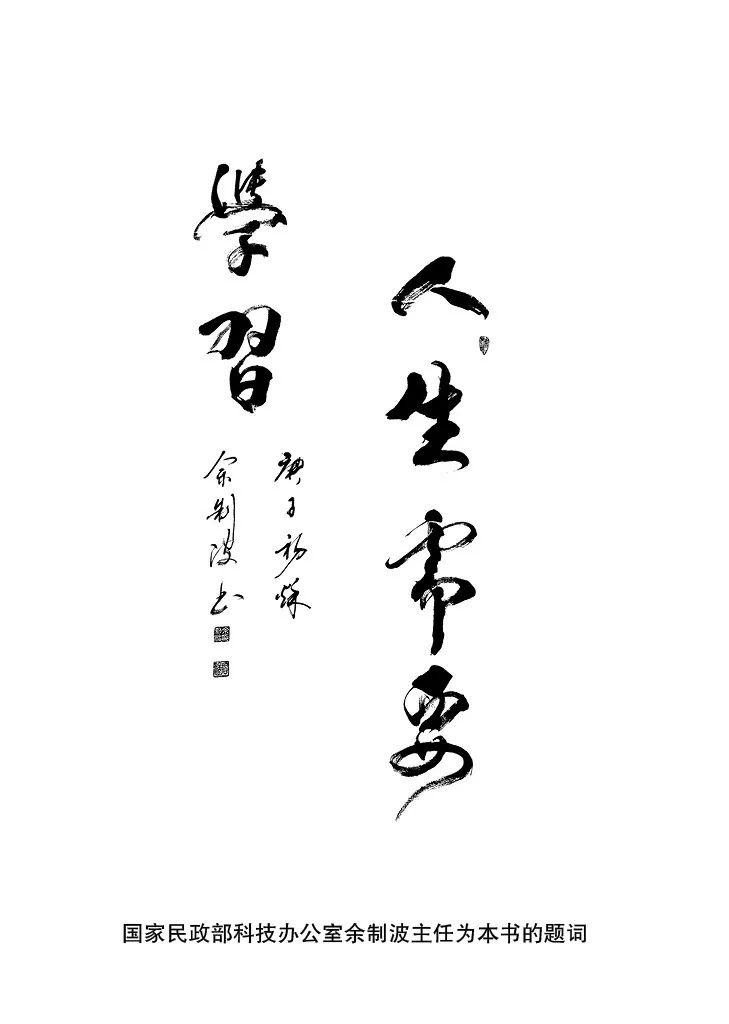 人生需要
學習
庚子初秋
余制波书
国家民政部科技办公室余制波主任为本书的题词